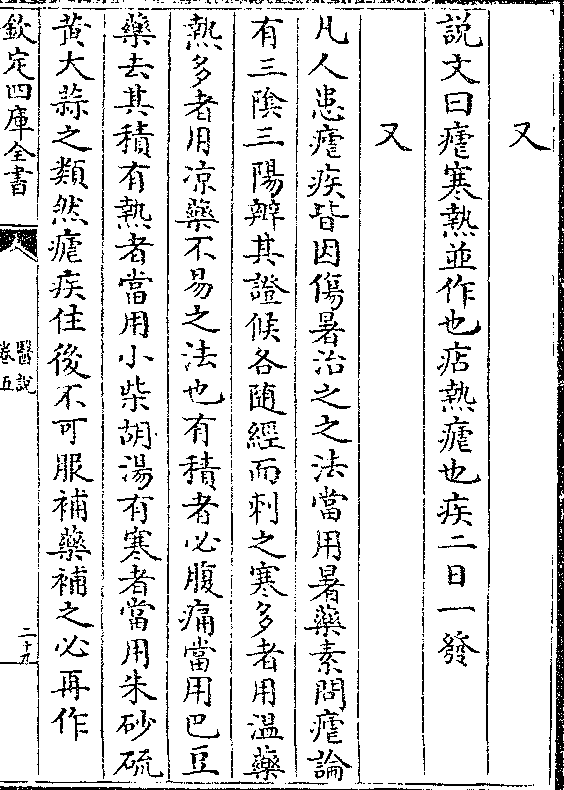 又
説文曰瘧寒熱並作也痁熱瘧也疾二日一發
又
凡人患瘧疾皆因傷暑治之之法當用暑藥素問瘧論
有三陰三陽辨其證候各随經而刺之寒多者用温藥
熱多者用凉藥不易之法也有積者必腹痛當用巴豆
藥去其積有熱者當用小柴胡湯有寒者當用朱砂硫
黄大蒜之類然瘧疾住後不可服補藥補之必再作
欽定四庫全書
醫說
卷五
二十九